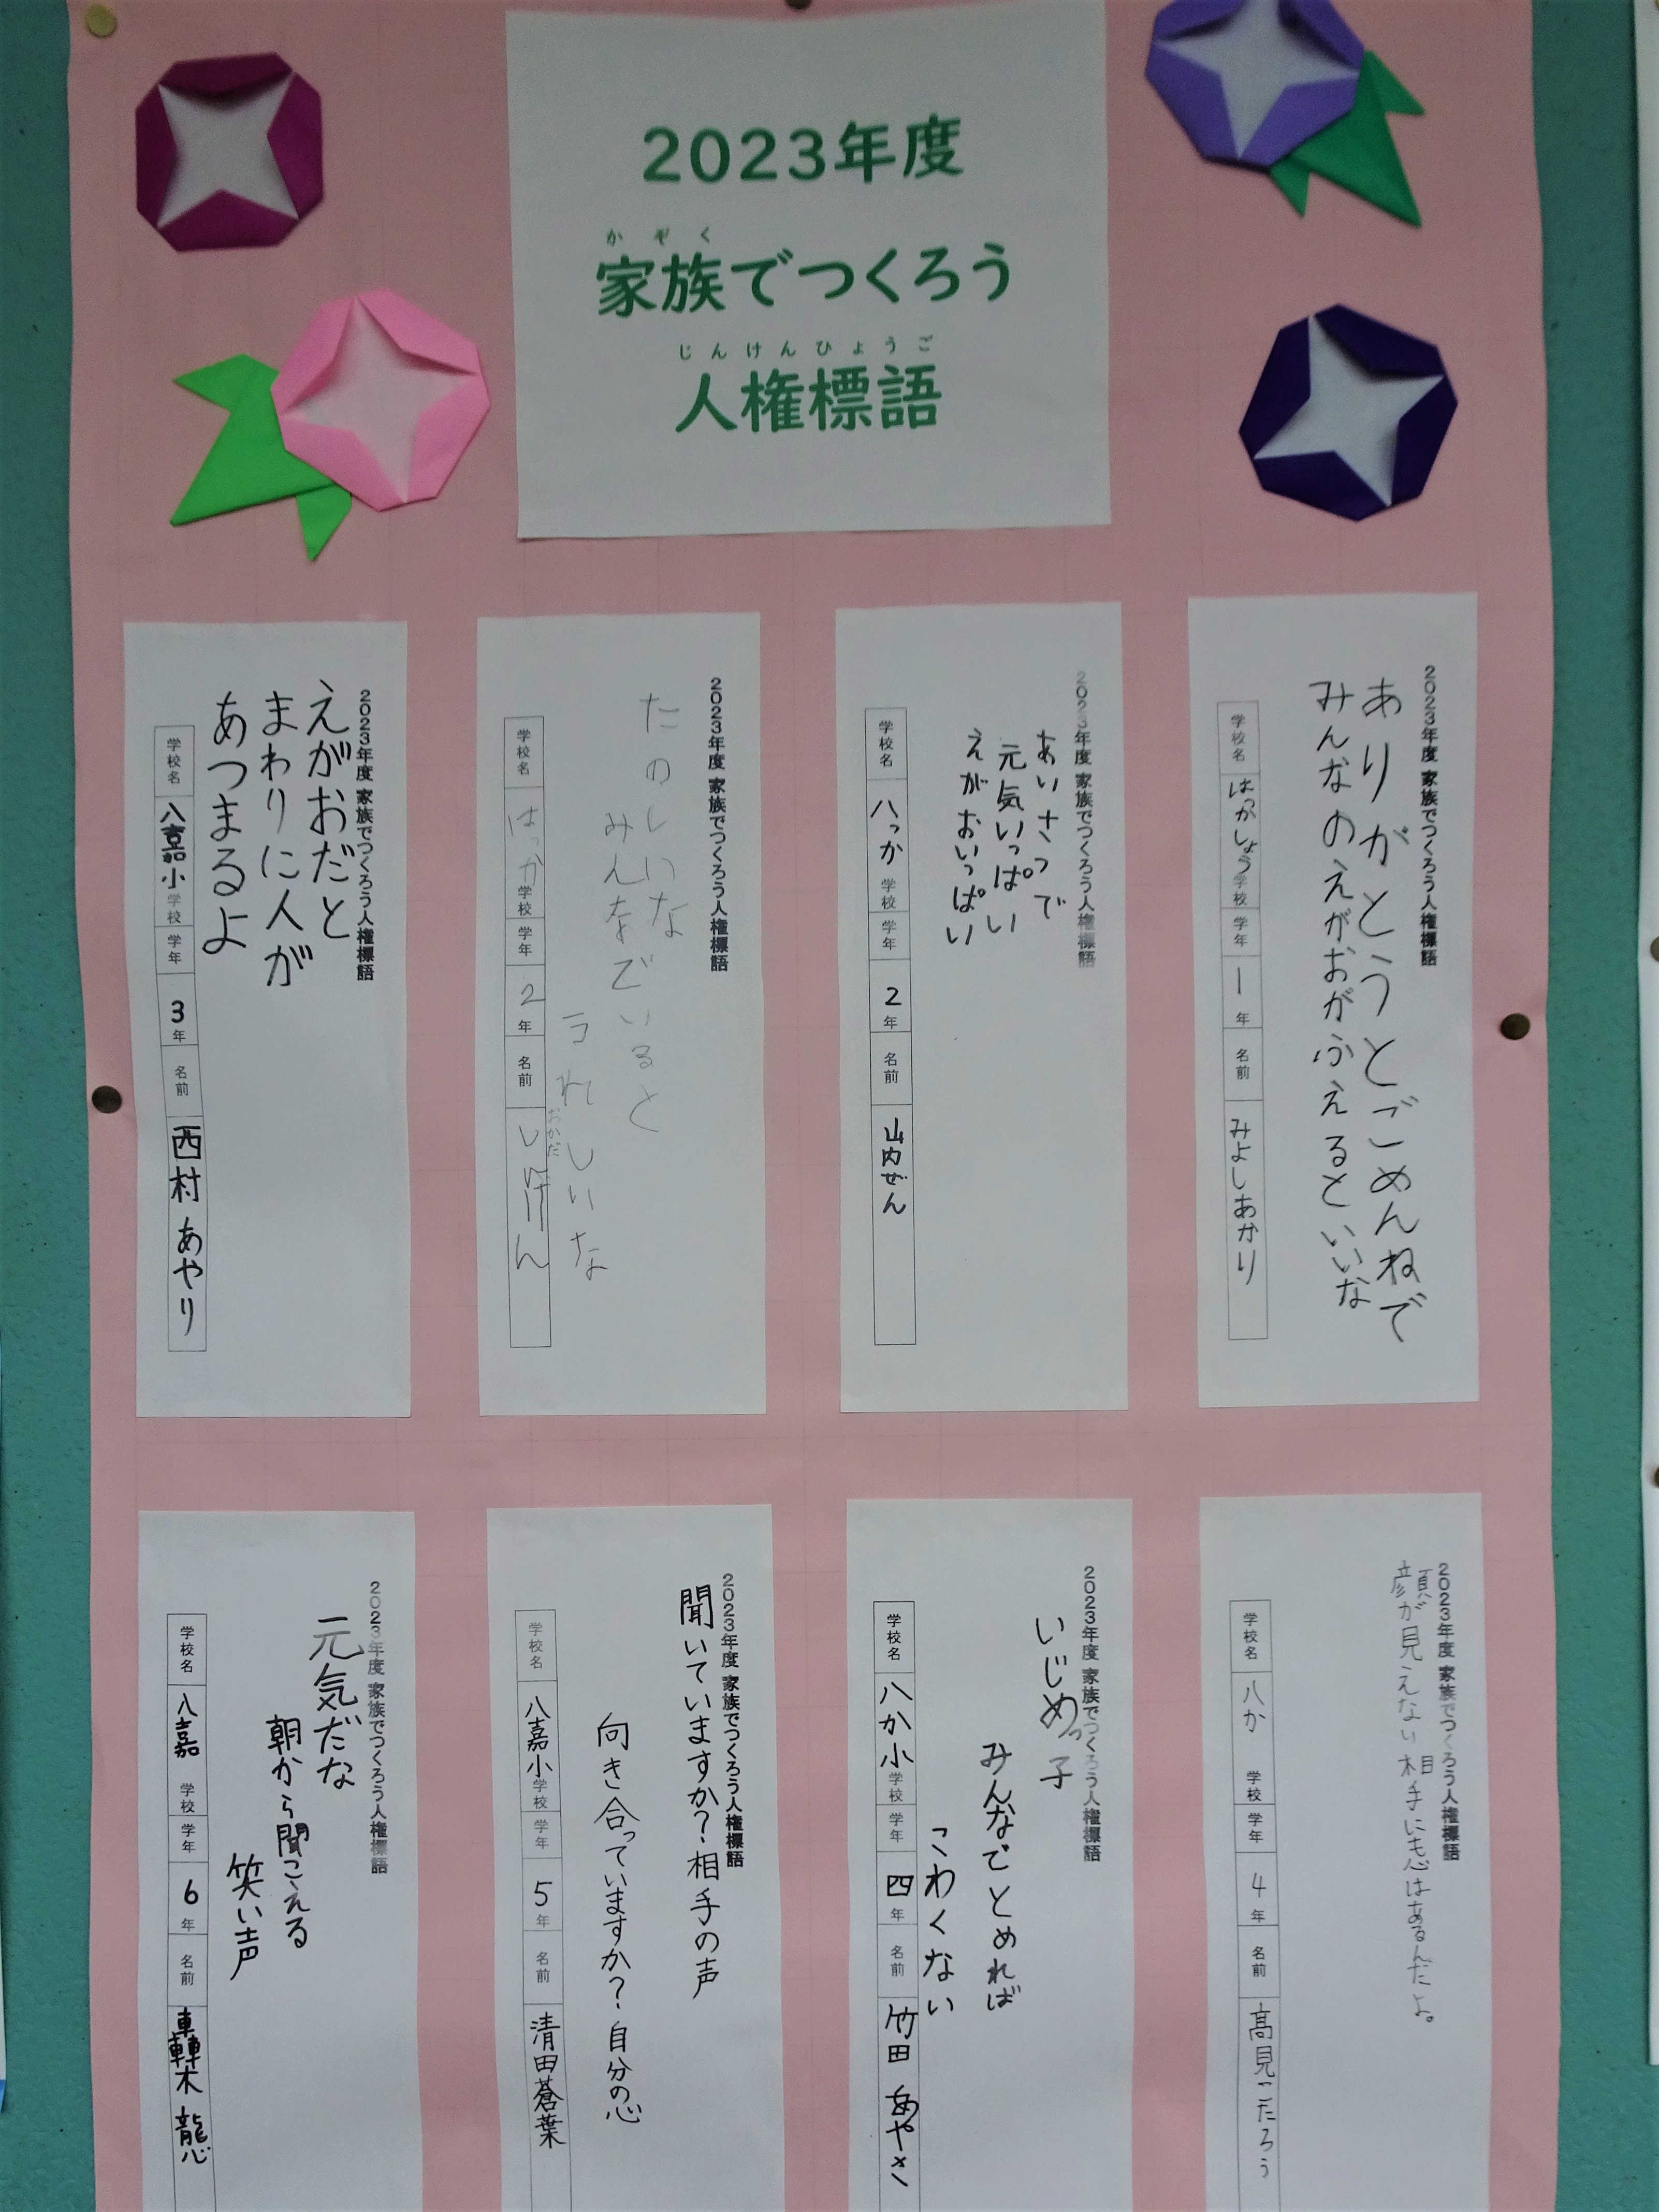 2023年度
かぞく
家族でつくろう
じんけんひょうご
人権標語
2023年度 家族でつくろう人権標語
ありがとうとごめんねで
みんなのえがおがふえるといいな
学校名 はっかしょう学校 学年 1年 名前 みよしあかり
2023年度 家族でつくろう人権標語
あいさつで
元気いっぱい
えがおいっぱい
学校名 八っか 学校 学年 2年 名前 山内ぜん
2023年度 家族でつくろう人権標語
たのしいな
みんなでいると
うれしいな
おかだ
学校名 はっか学校 学年 2年 名前
2023年度 家族でつくろう人権標語
えがおだと
まわりに人が
あつまるよ
学校名 八嘉小学校 学年 3年 名前 西村 あやり
2023年度 家族でつくろう人権標語
顔が見えない相手にも心はあるんだよ。
学校名 八か 学校 学年 4年 名前 髙見こたろう
2023年度 家族でつくろう人権標語
いじめっ子
みんなでとめれば
こわくない
学校名 八か小学校 学年 四年 名前 竹田 あやさ
2023年度 家族でつくろう人権標語
聞いていますか?相手の声
向き合っていますか?自分の心
学校名 八嘉小学校 学年 5年 名前 清田蒼葉
2023年度 家族でつくろう人権標語
元気だな
朝から聞こえる
笑い声
学校名 八嘉 学校 学年 6年 名前 轟木 龍心